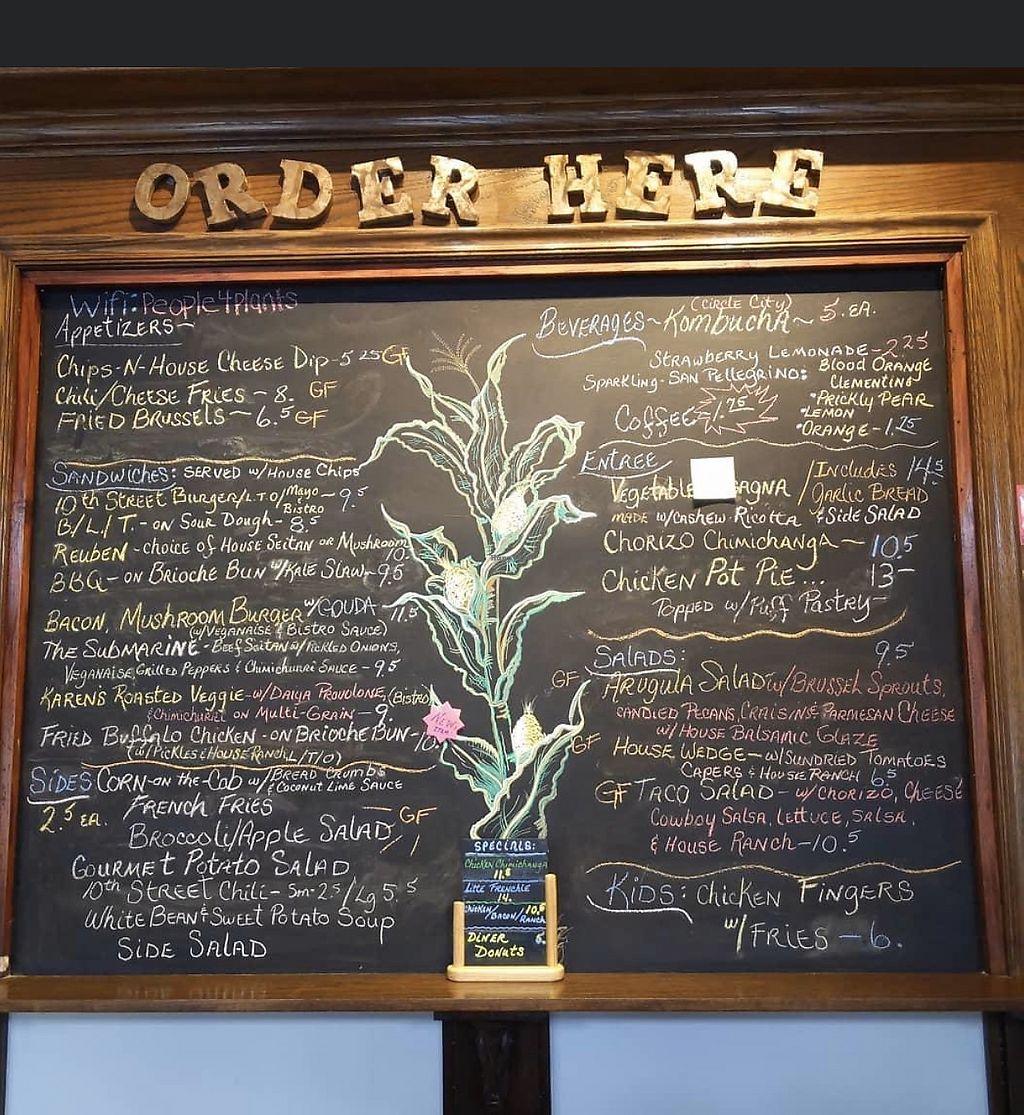 ORDER HERE
Wifi: People4Plants
Appetizers~
Chips-N-House Cheese Dip-5 25 GF
Chili/Cheese Fries ~ 8. GF
Fried Brussels ~ 6.5 GF
Sandwiches: Served w/House Chips
10th Street Burger/L/T/O/Mayo & Bistro ~ 9.5
B/L/T.- on Sour Dough- 8.5
Reuben - choice of House Seitan or Mushroom 10-
BBQ- on Brioche Bun w/Kale Slaw~9.5
Bacon, Mushroom Burger w/Gouda - 11.5
(w/Veganaise & Bistro Sauce)
The Submarine - Beef Seitan w/Pickled Onions,
Veganaise, Grilled Peppers & Chimichurri Sauce - 9.5
Karen's Roasted Veggie - w/Daiya Provolone, (Bistro)
& Chimichurri on Multi-Grain - 9.
New Item!
Fried Buffalo Chicken - on Brioche Bun- 10.
(w/Pickles & House Ranch L/T/O)
Sides Corn-on-the-Cob w/Bread Crumbs & Coconut Lime Sauce
2.5 ea. French Fries
Broccoli/Apple Salad GF
Gourmet Potato Salad
10th Street Chili - Sm-2.5/Lg 5.5
White Bean & Sweet Potato Soup
Side Salad
Specials:
Chicken Chimichanga
11.5
Little Frenchie
14.
Chicken/Bacon/Ranch 10.5
Diner Donuts 6.
(Circle City)
Beverages~Kombucha~ 5. ea.
Strawberry Lemonade-2.25
Sparkling-San Pellegrino: Blood Orange
Clementine
*Prickly Pear
*Lemon
*Orange-1.75
Coffee 1.75
Entree
Vegetable agna /Includes 14.5
Garlic Bread
made w/Cashew-Ricotta & Side Salad
Chorizo Chimichanga~ 10.5
Chicken Pot Pie... 13-
Topped w/Puff Pastry~
Salads: 9.5
GF Arugula Salad w/Brussel Sprouts,
Candied Pecans, Craisins & Parmesan Cheese
w/House Balsamic Glaze
GF House Wedge-w/Sundried Tomatoes
Capers & House Ranch 6.5
GF Taco Salad - w/Chorizo, Cheese
Cowboy Salsa, Lettuce, Salsa,
& House Ranch-10.5
Kids: Chicken Fingers
w/Fries - 6.